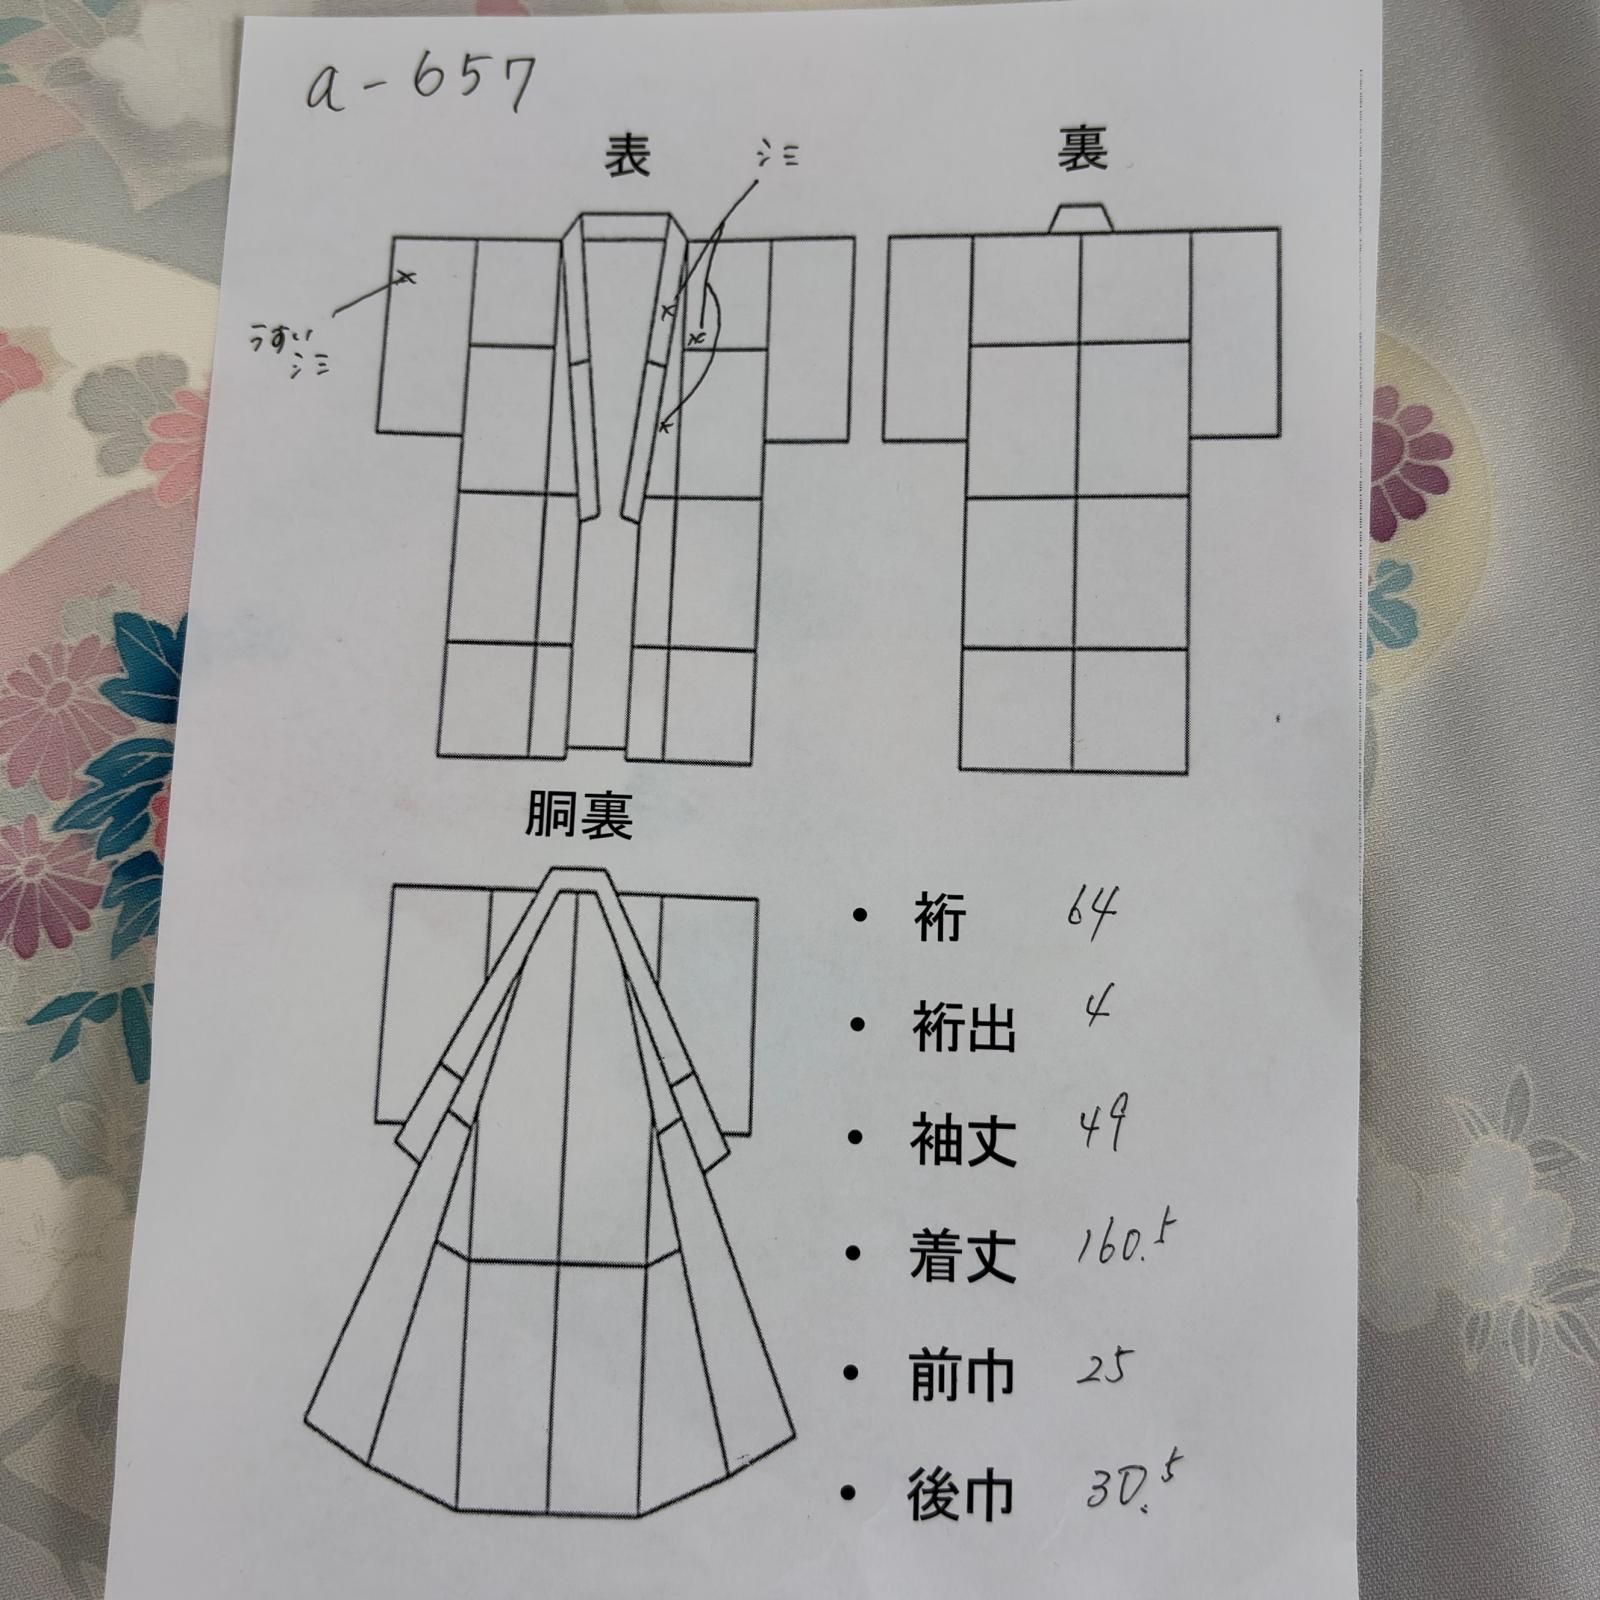 a-657
表
シミ
裏
うすい
シミ
胴裏
・裄 64
・裄出 4
・袖丈 49
・着丈 160.5
・前巾 25
・後巾 30.5